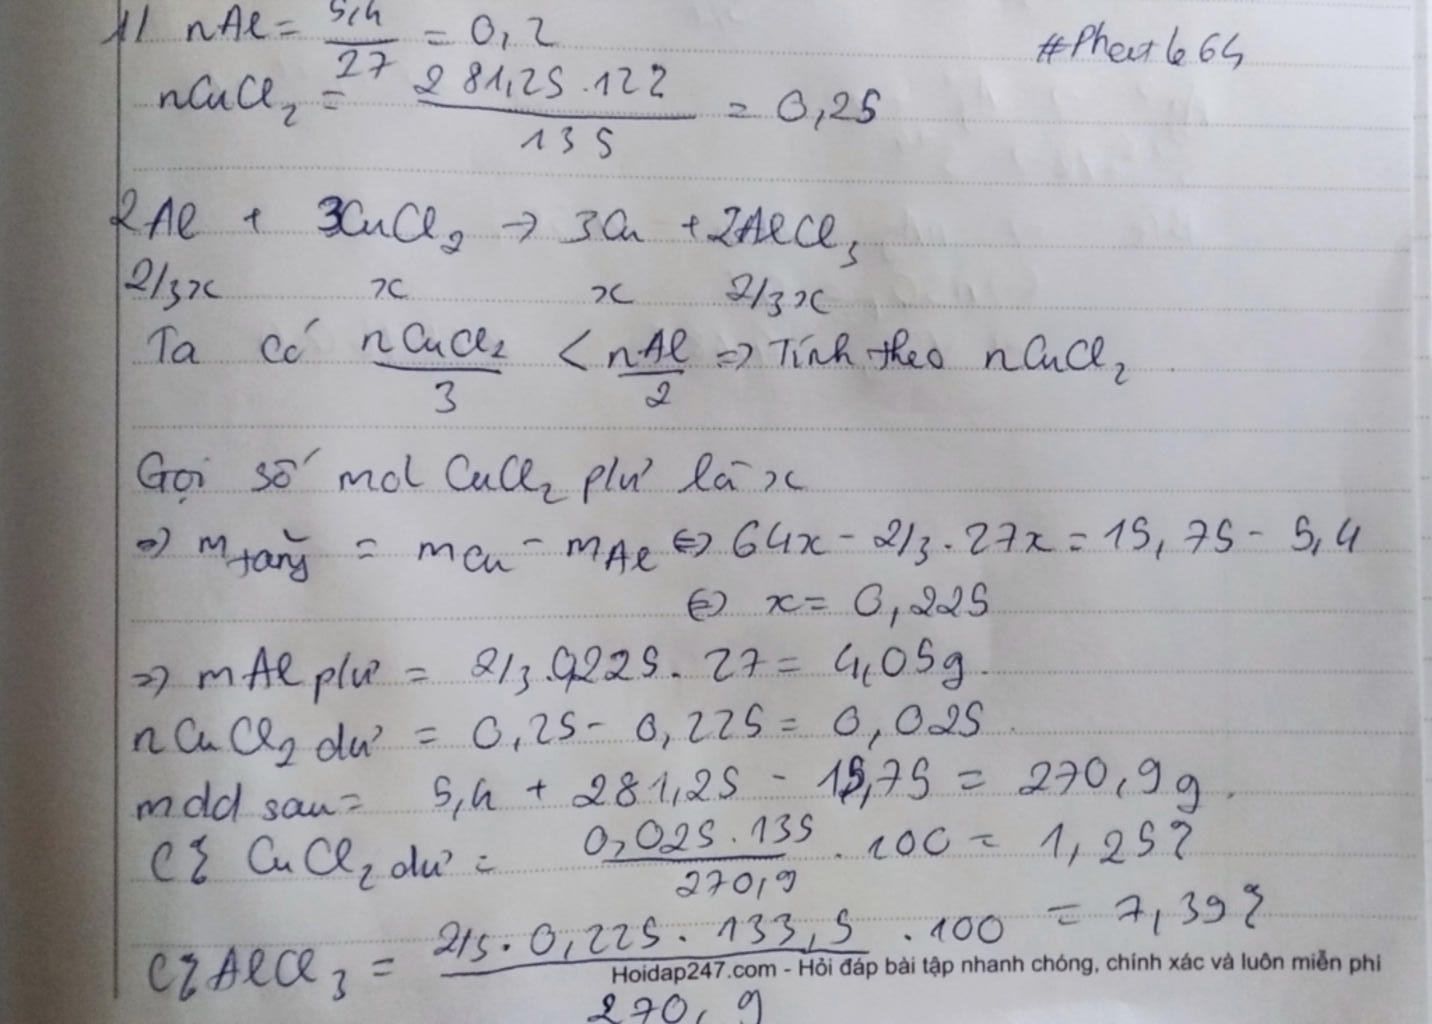 1/ nAl = 5,4/27 = 0,2
#Phat664
nCuCl₂ = 281,25.12%/135 = 0,25
2Al + 3CuCl₂ → 3Cu + 2AlCl₃
2/3x x x 2/3x
Ta có nCuCl₂/3 < nAl/2 => Tính theo nCuCl₂
Gọi số mol CuCl₂ pứ là x
=> m tăng = mCu - mAl <=> 64x - 2/3.27x = 15,75 - 5,4
<=> x = 0,225
=> mAl pứ = 2/3.0,225.27 = 4,05g.
nCuCl₂ dư = 0,25 - 0,225 = 0,025.
mdd sau = 5,4 + 281,25 - 15,75 = 270,9g.
C% CuCl₂ dư = 0,025.135/270,9 . 100 = 1,25%
C% AlCl₃ = 2/3.0,225.133,5/270,9 . 100 = 7,39%
Hoidap247.com - Hỏi đáp bài tập nhanh chóng, chính xác và luôn miễn phí